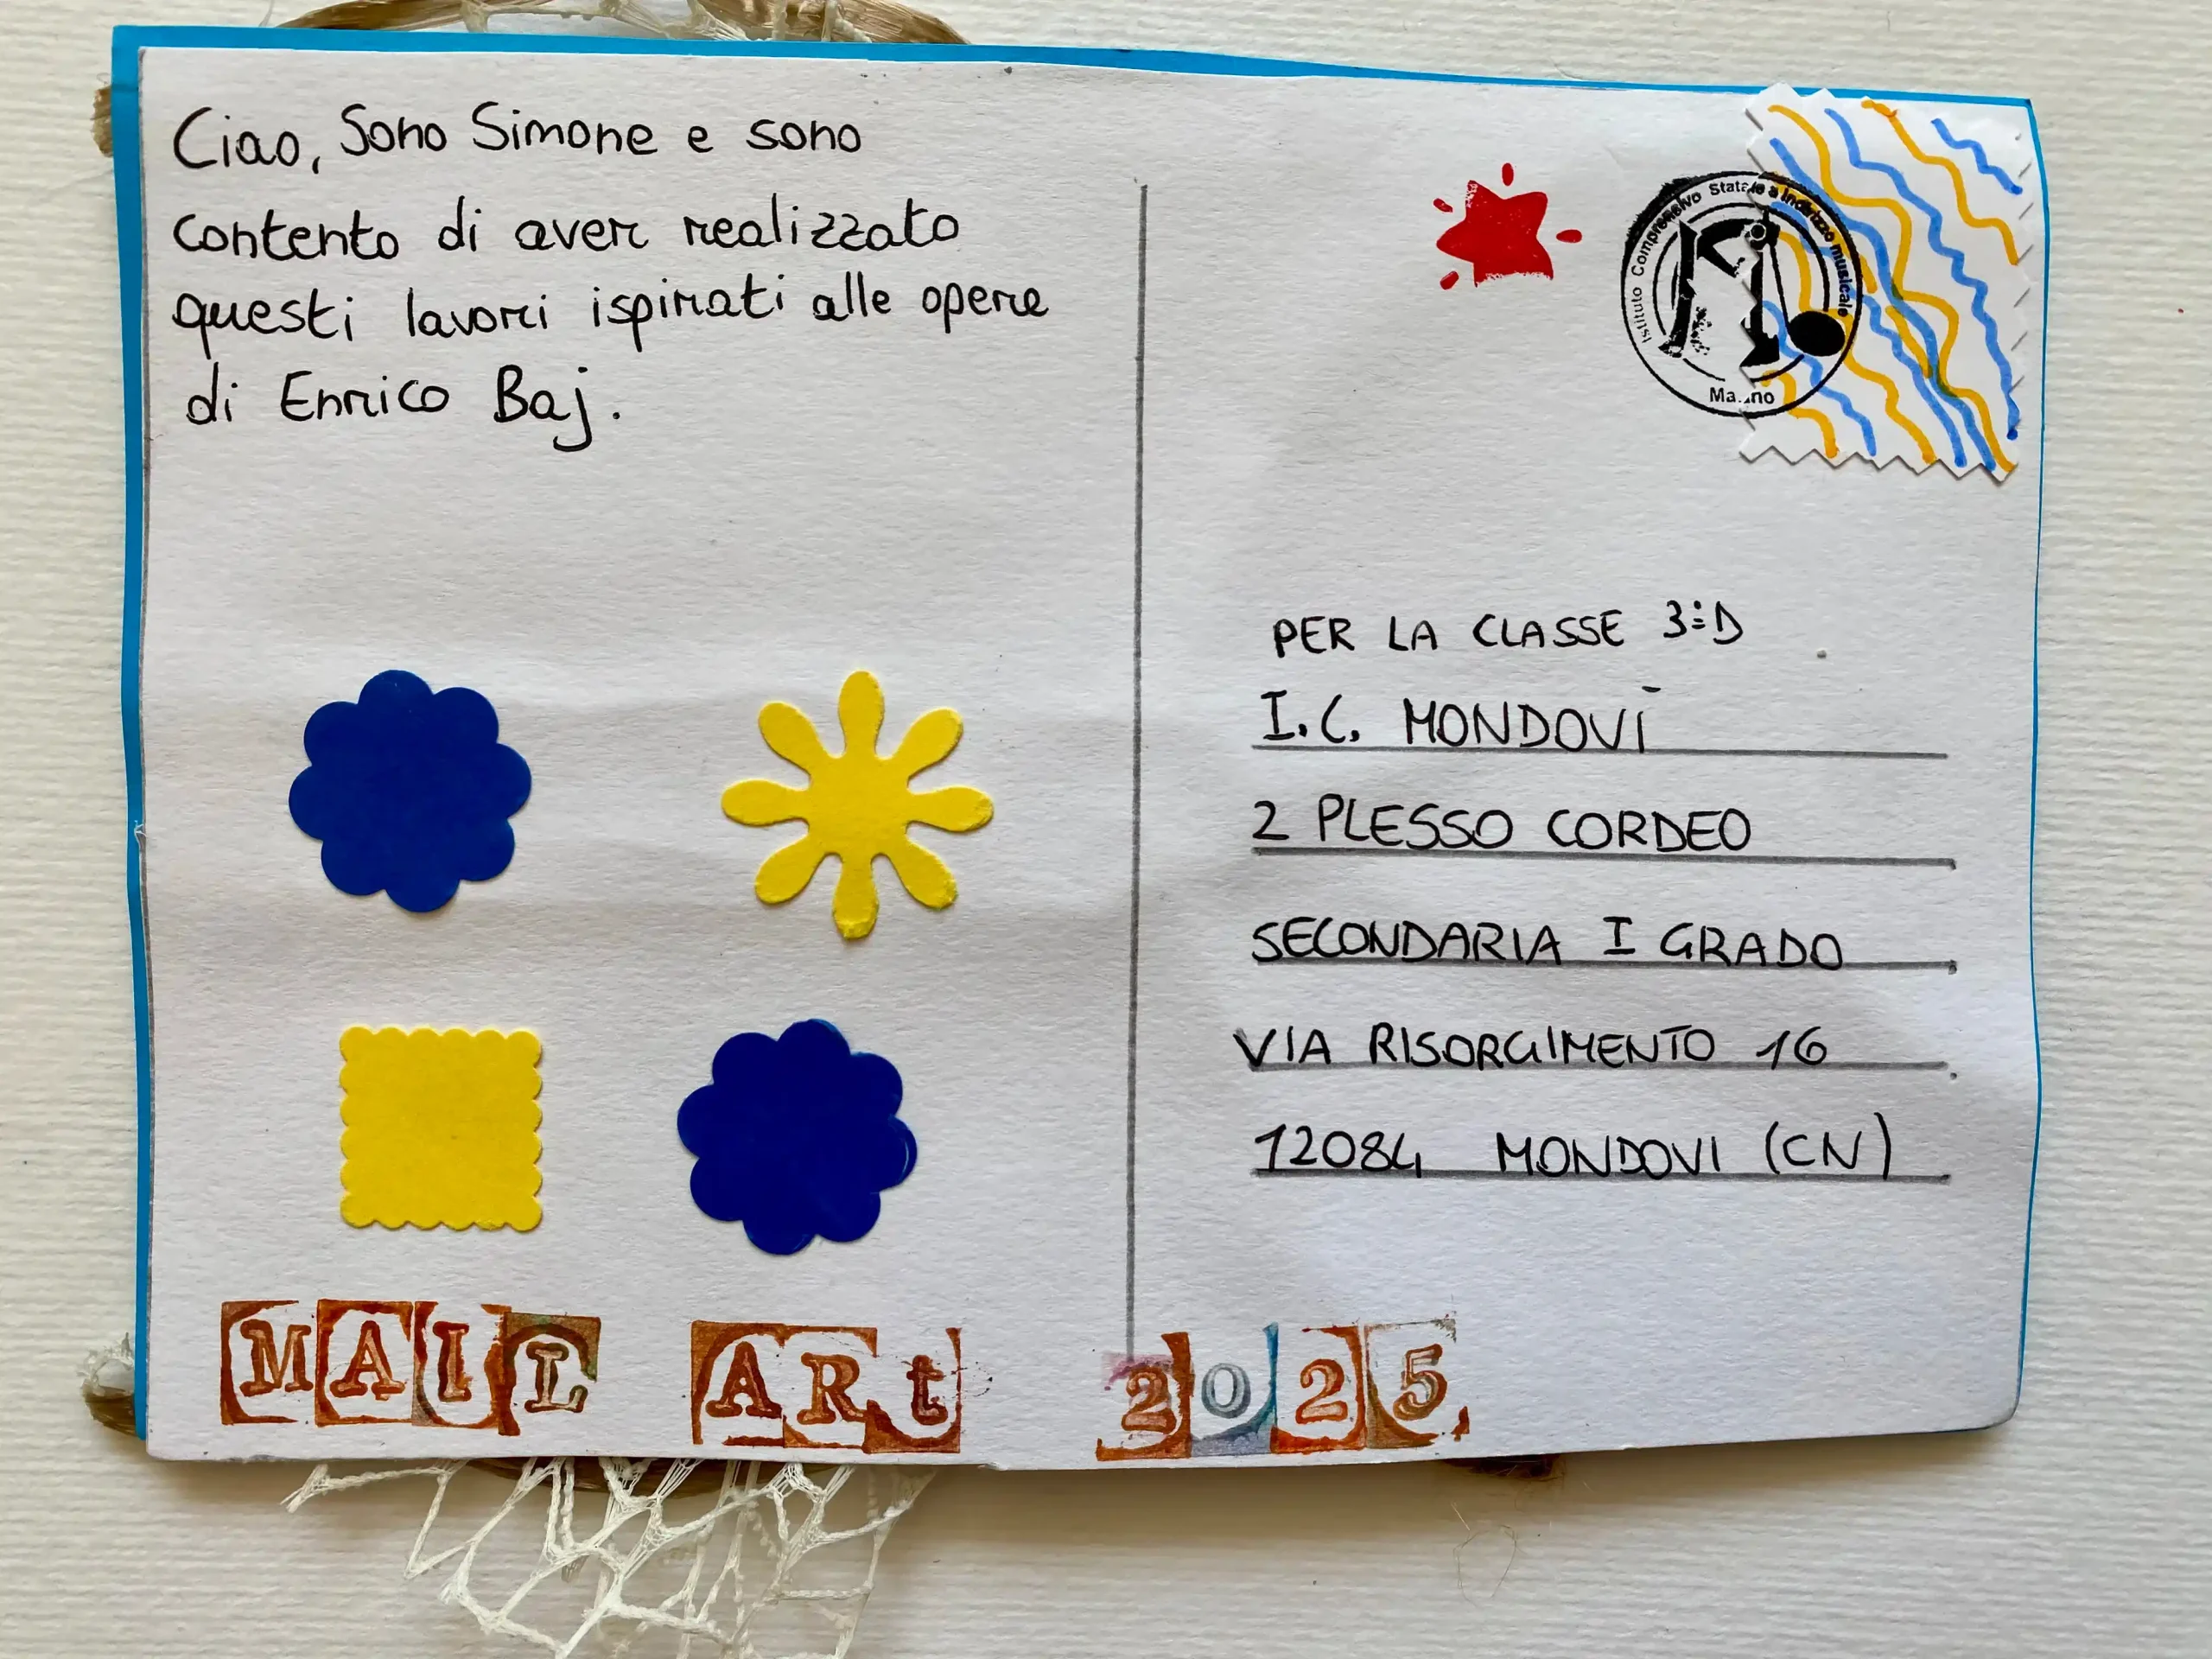 Ciao, Sono Simone e sono
contento di aver realizzato
questi lavori ispirati alle opere
di Enrico Baj.
Istituto Comprensivo Statale a indirizzo musicale
PER LA CLASSE 3:D
I.C. MONDOVÌ
2 PLESSO CORDEO
SECONDARIA I GRADO
VIA RISORGIMENTO 16
12084 MONDOVI (CN)
MAIL ARt 2025